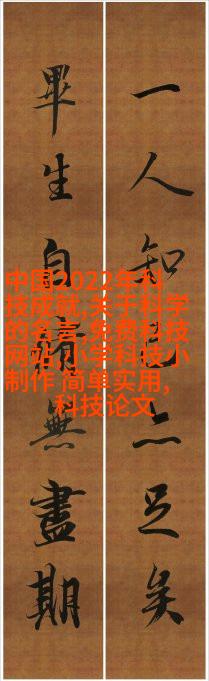 一人知亦足矣
畢生自無盡期
中国2022年科
技成就,关于科学
的名言,免费科技
网站,小学科技小
制作 简单实用,
科技论文